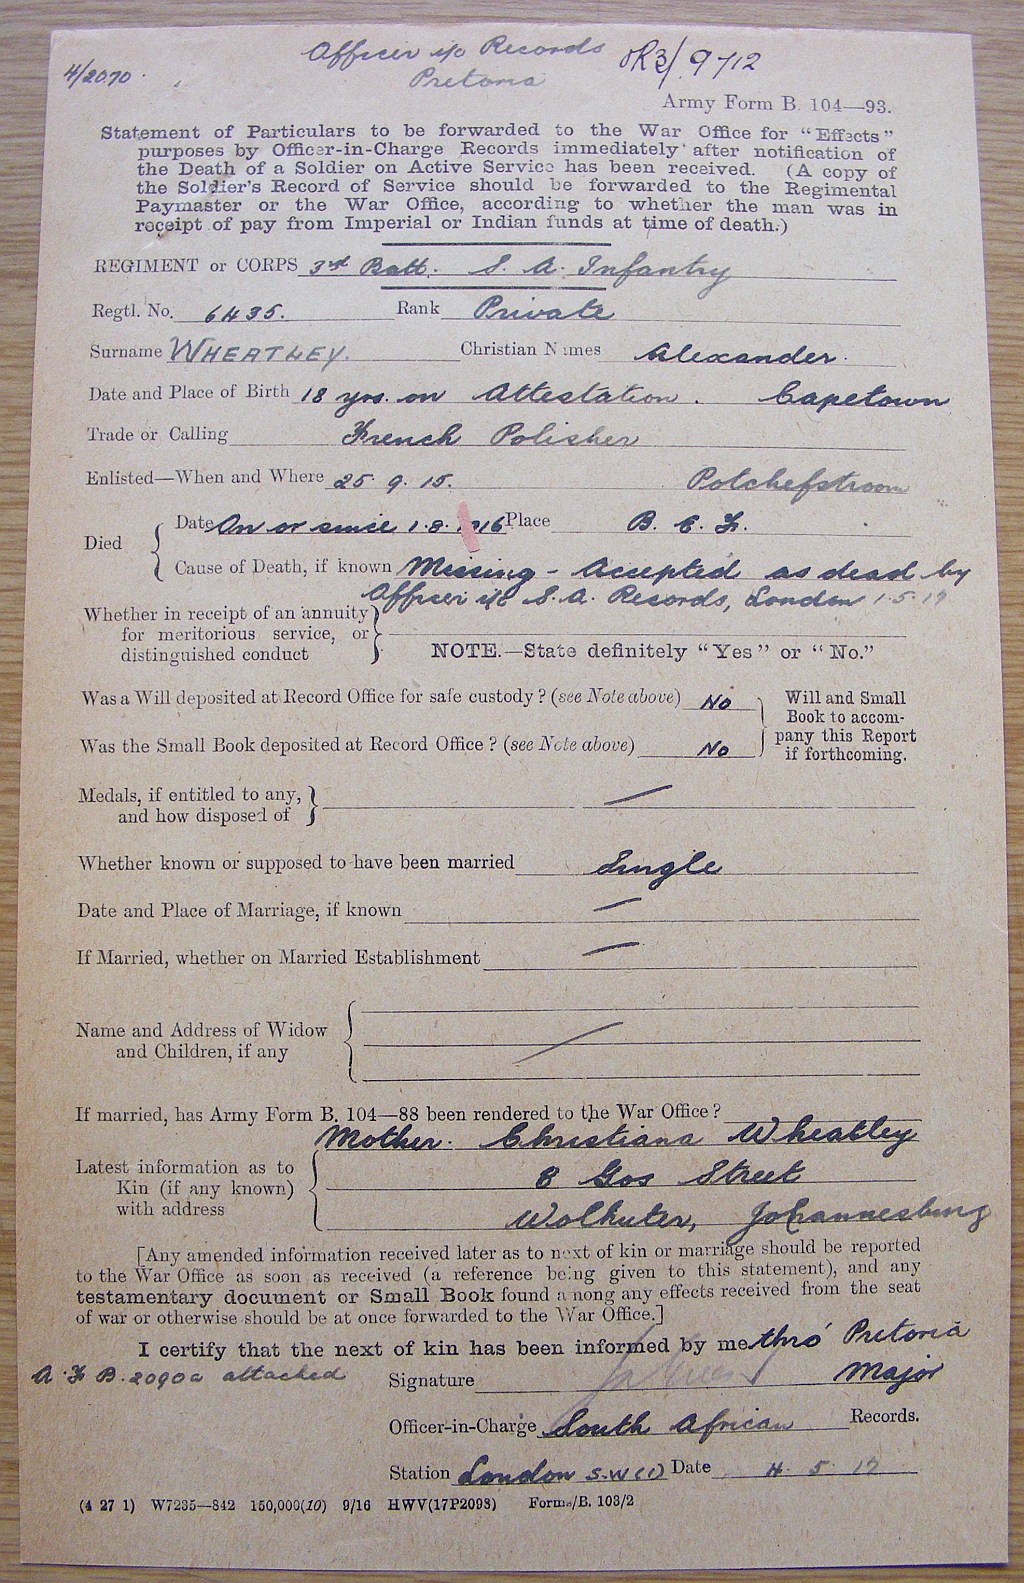 Officer i/c Records
Pretoria
4/2070.
9712
Army Form B. 104—93.
Statement of Particulars to be forwarded to the War Office for "Effects"
purposes by Officer-in-Charge Records immediately after notification of
the Death of a Soldier on Active Service has been received. (A copy of
the Soldier's Record of Service should be forwarded to the Regimental
Paymaster or the War Office, according to whether the man was in
receipt of pay from Imperial or Indian funds at time of death.)
REGIMENT or CORPS 3rd Batt. S. A. Infantry
Regtl. No. 6435. Rank Private
Surname WHEATLEY. Christian Names Alexander.
Date and Place of Birth 18 yrs. on Attestation. Capetown
Trade or Calling French Polisher
Enlisted—When and Where 25. 9. 15. Potchefstroom
Died { Date On or since 1.8.1916 Place B. E. F.
Cause of Death, if known Missing - Accepted as dead by
Officer i/c S.A. Records, London 1.5.17
Whether in receipt of an annuity
for meritorious service, or
distinguished conduct }
NOTE.—State definitely "Yes" or "No."
Was a Will deposited at Record Office for safe custody? (see Note above) No
Was the Small Book deposited at Record Office? (see Note above) No
} Will and Small
Book to accom-
pany this Report
if forthcoming.
Medals, if entitled to any,
and how disposed of } /
Whether known or supposed to have been married Single
Date and Place of Marriage, if known /
If Married, whether on Married Establishment /
Name and Address of Widow
and Children, if any { /
If married, has Army Form B. 104—88 been rendered to the War Office?
Latest information as to
Kin (if any known)
with address {
Mother. Christiana Wheatley
8 Gos Street
Wolhuter, Johannesburg
[Any amended information received later as to next of kin or marriage should be reported
to the War Office as soon as received (a reference being given to this statement), and any
testamentary document or Small Book found among any effects received from the seat
of war or otherwise should be at once forwarded to the War Office.]
I certify that the next of kin has been informed by me thro' Pretoria
A.F B.2090a attached
Signature Major
Officer-in-Charge South African Records.
Station London S.W(1) Date 4. 5. 17
(4 27 1) W7235—842 150,000(10) 9/16 HWV(17P2098) Forms/B. 103/2